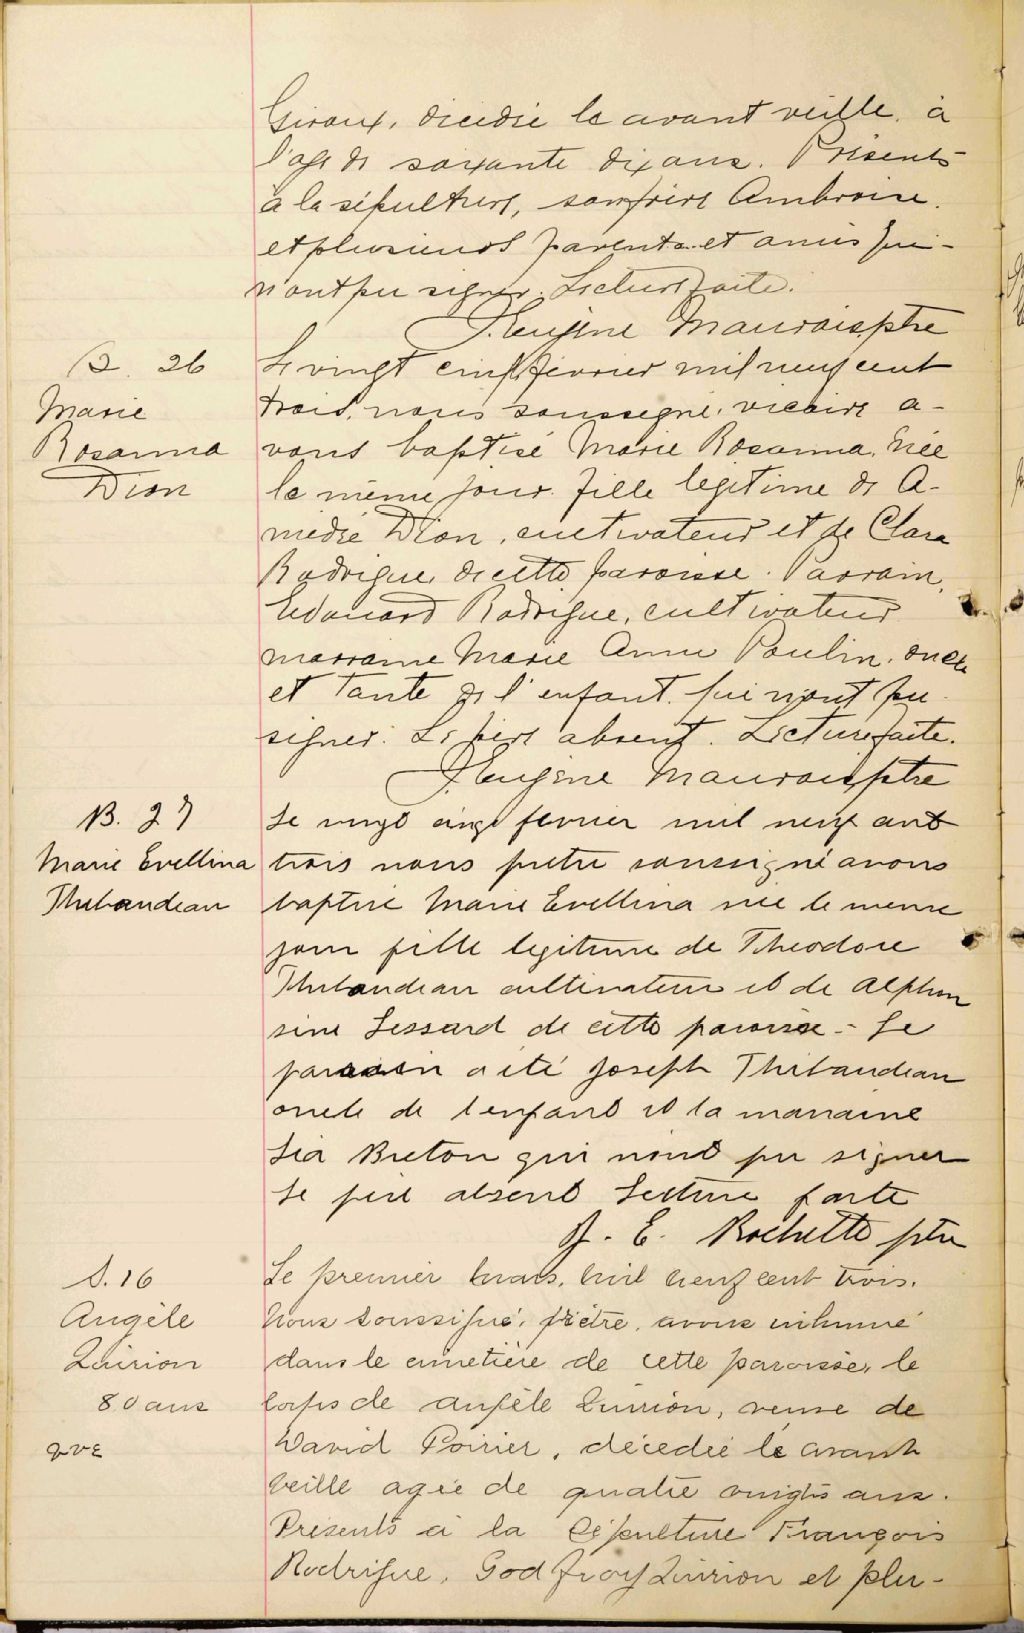 Giroux, décédée le avant veille, à
l'age de soixante dix ans. Présents
à la sépulture, son frère Ambroise.
et plusieurs parents et amis qui
n'ont pu signer. Lecture faite.
J. Eugène Mauvais, ptre
B. 26
Marie
Rosanna
Dion
Le vingt cinq février mil neuf cent
trois, nous soussigné, vicaire a-
vons baptisé Marie Rosanna, née
le même jour fille légitime de A-
médée Dion, cultivateur et de Clara
Rodrigue de cette paroisse. Parrain,
Edouard Rodrigue, cultivateur
marraine Marie Anne Poulin, oncle
et tante de l'enfant qui n'ont pu
signer. Le père absent. Lecture faite.
J. Eugène Mauvais, ptre
B. 27
Marie Evellina
Thibaudeau
Le vingt cinq fevrier mil neuf cent
trois nous pretre soussigné avons
baptisé Marie Evellina née le meme
jour fille legitime de Theodore
Thibaudeau cultivateur et de Alphon
sine Lessard de cette paroisse - Le
parrain a été Joseph Thibaudeau
oncle de l'enfant et la marraine
Léa Breton qui n'ont pu signer
Le père absent Lecture faite
J. E. Rochette ptre
S. 16
Angèle
Quirion
80 ans
vve
Le premier mars, mil neuf cent trois.
Nous soussigné, prêtre, avons inhumé
dans le cimetière de cette paroisse, le
corps de Angèle Quirion, veuve de
David Poirier, décédée le avant
veille agée de quatre vingts ans.
Présents à la sépulture François
Rodrigue, Godfroy Quirion et plu-